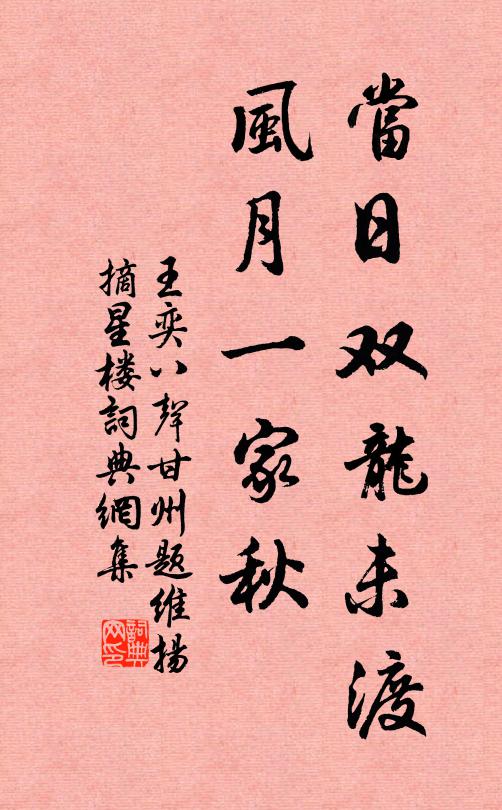 當日双龍未渡
風月一家秋
王奕八聲甘州题維揚
摘星楼詞典網集
詞典网印